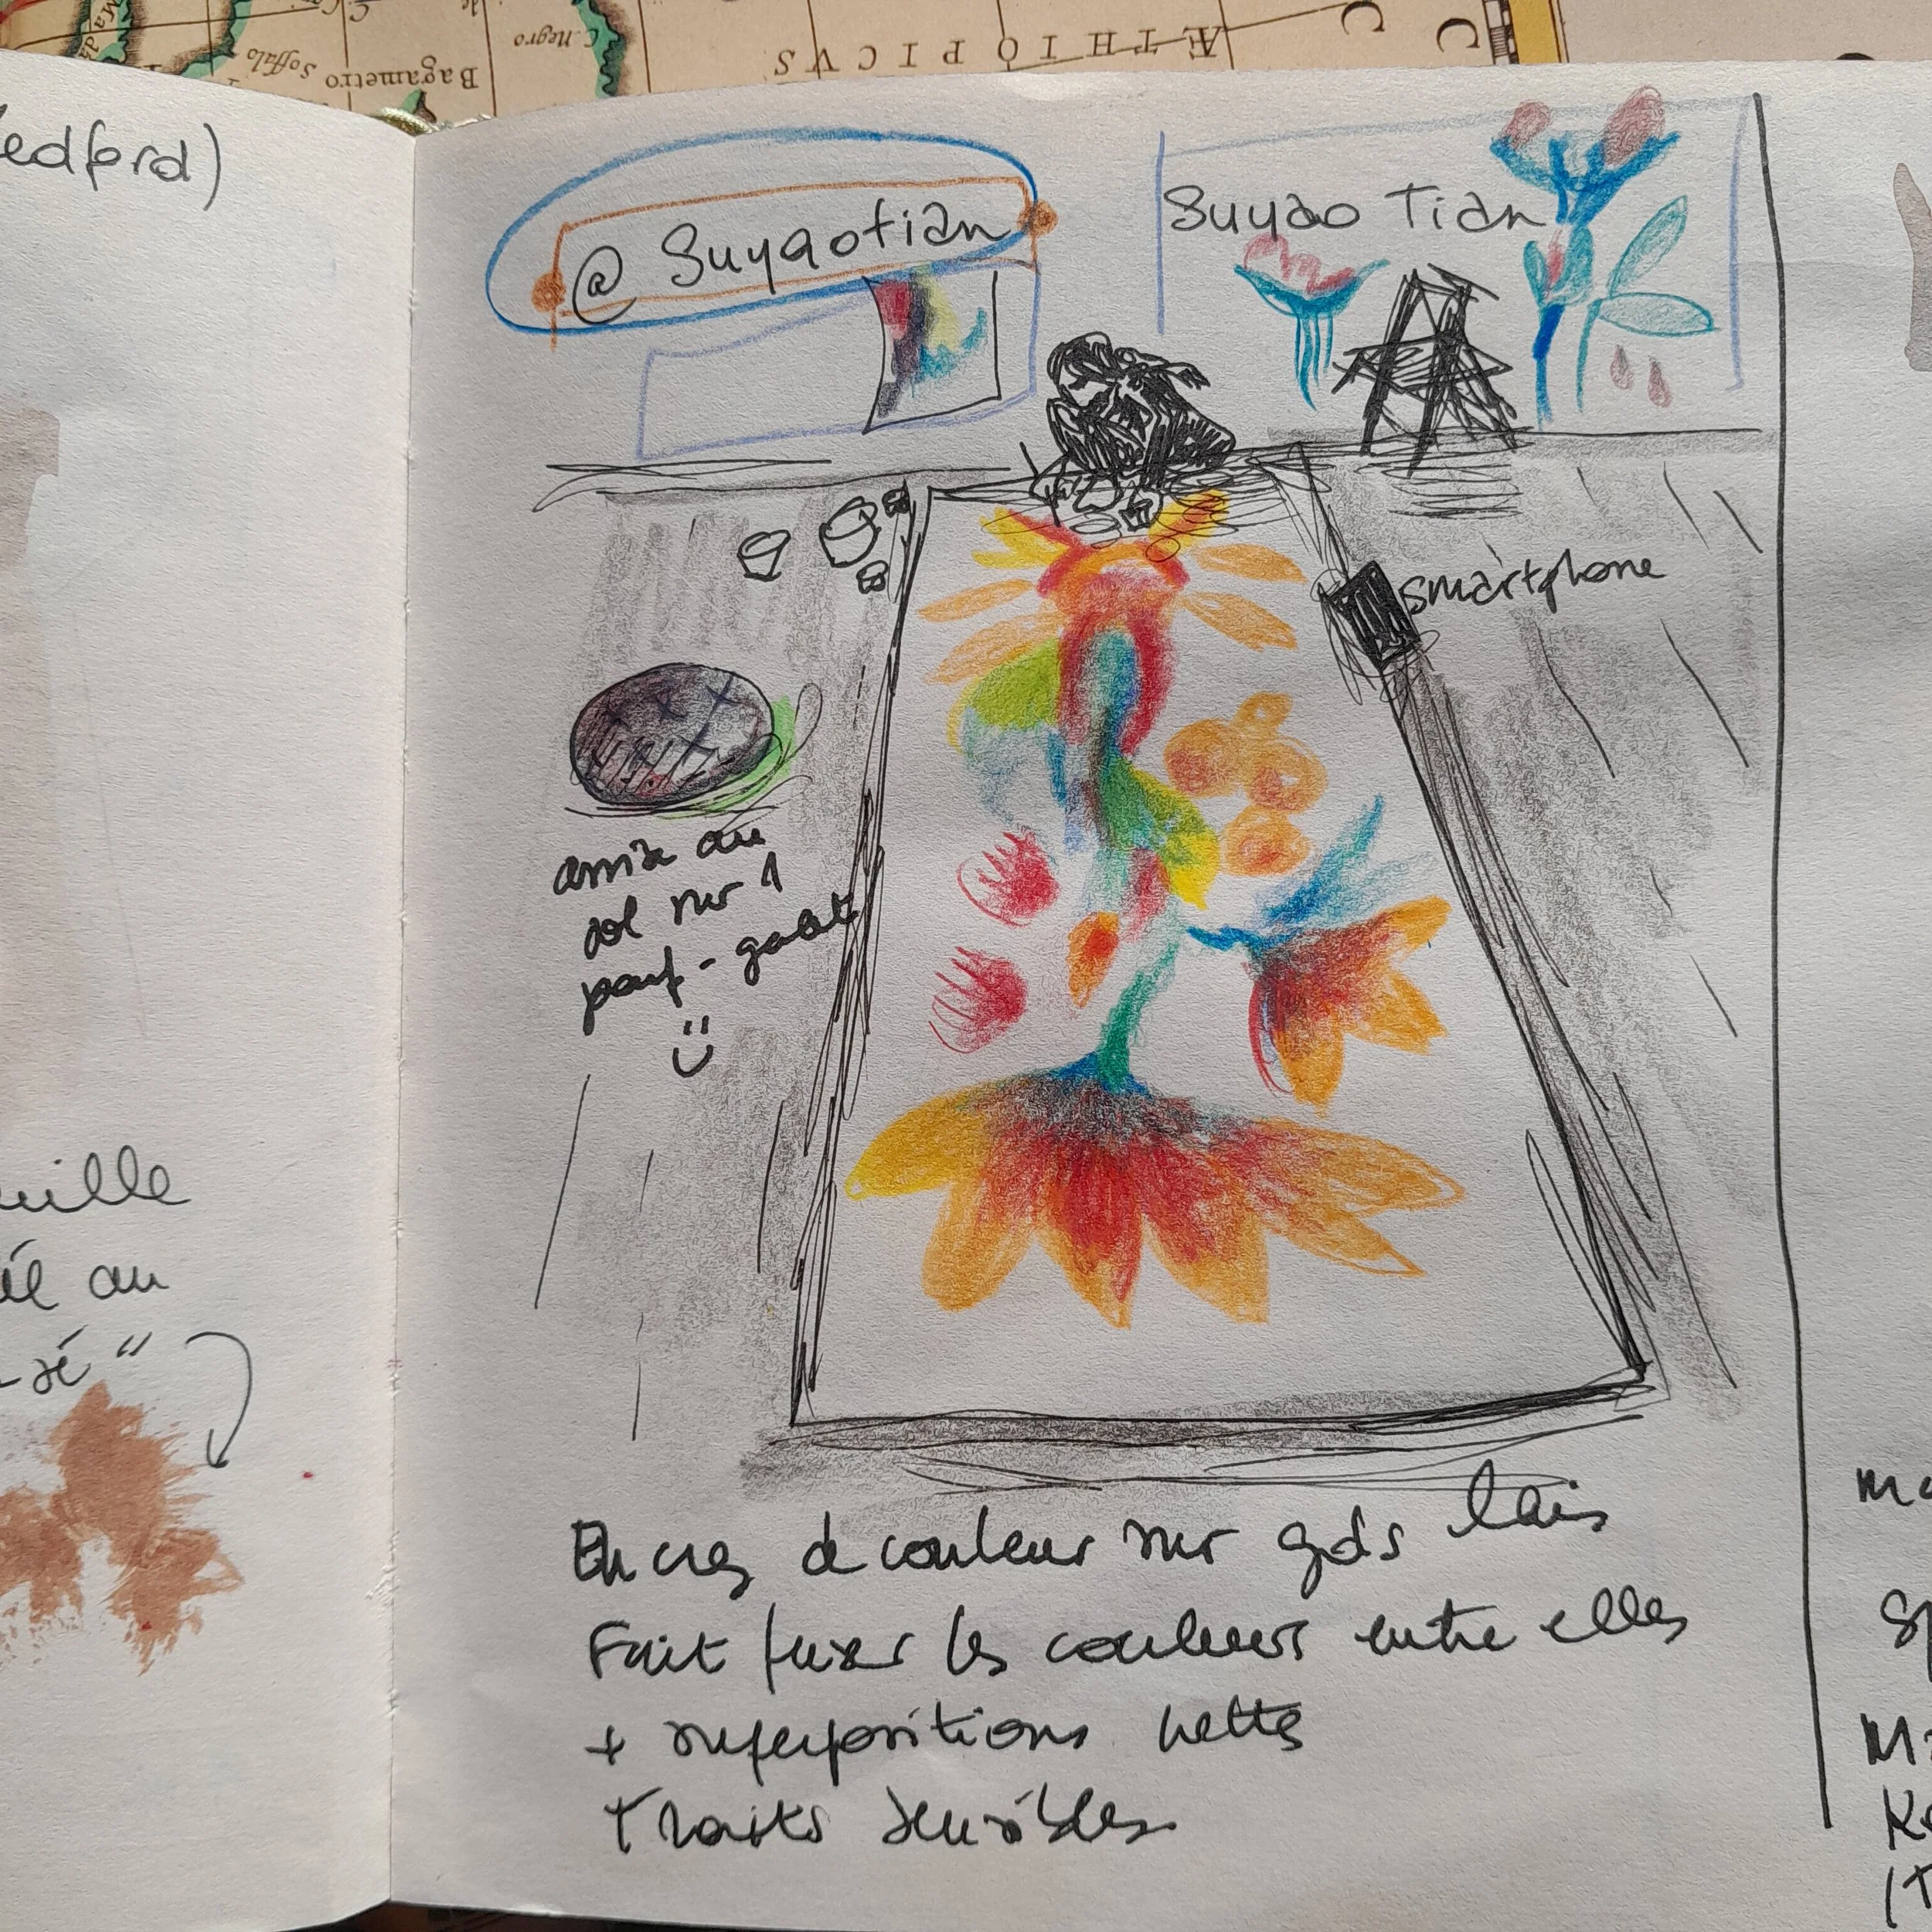 ÆTHIOPICVS
C. negro
Bagametro
Soffala
edford)
uille
au
@ Suyaotian
Suyao Tian
smartphone
assise au
sol sur 1
pouf-galet
Encres de couleur sur gds lais
Fait fuser les couleurs entre elles
+ superpositions nettes
Traits sensibles